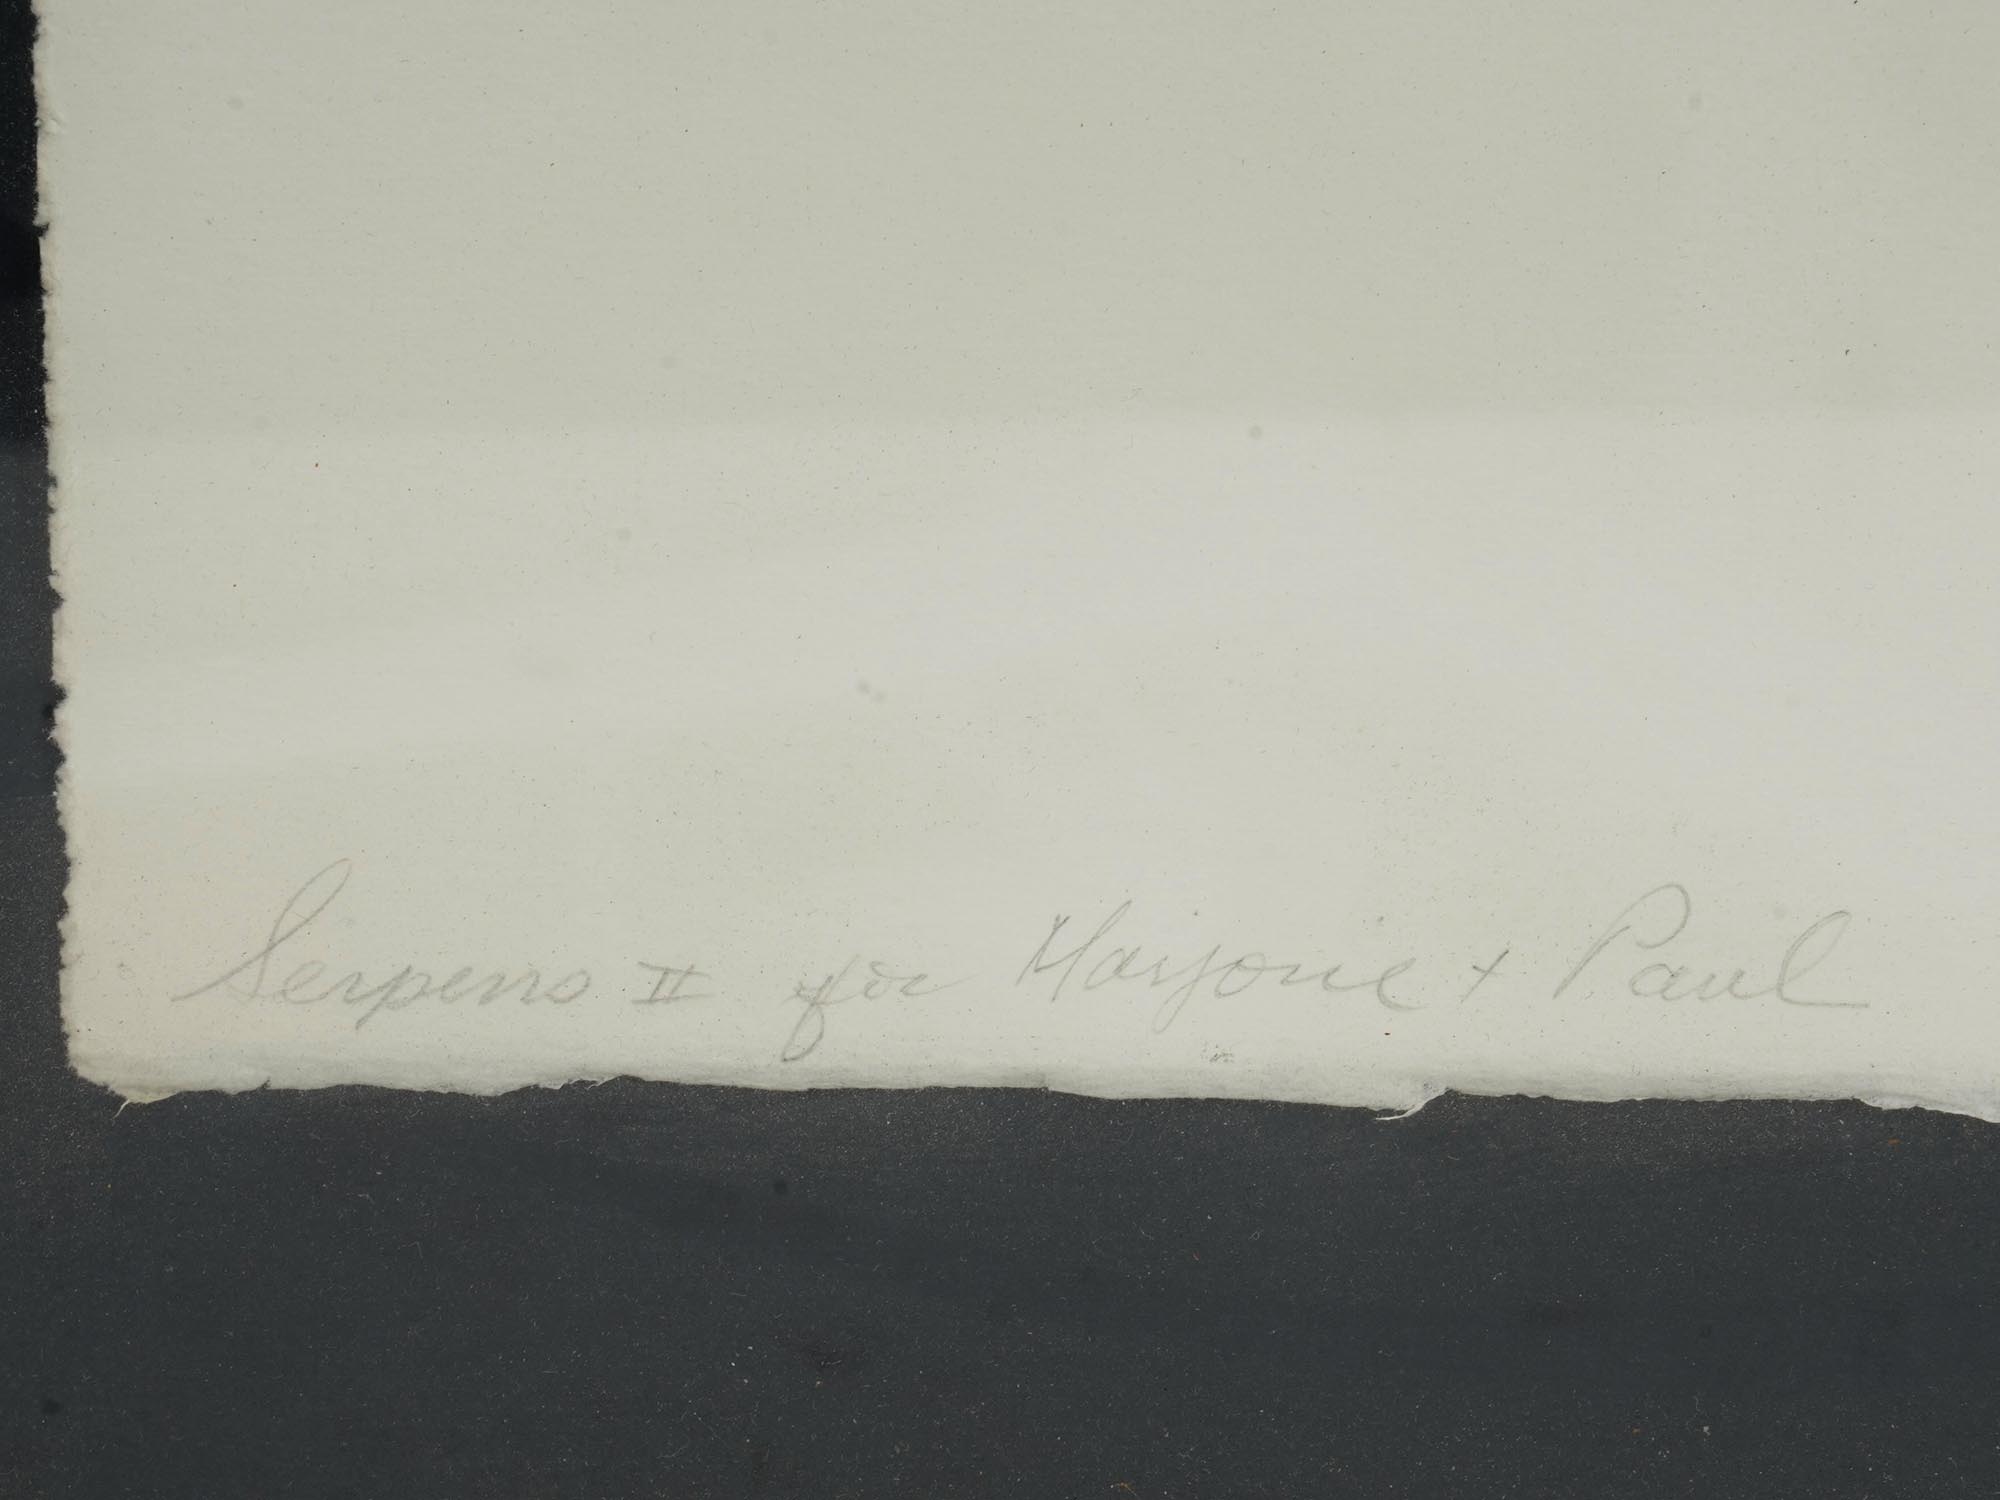 Serpens II for Marjorie + Paul